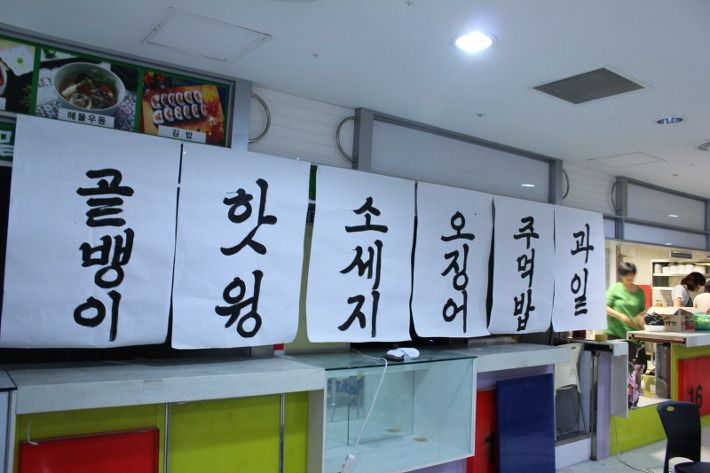 해물우동
김밥
골뱅이
핫윙
소세지
오징어
주먹밥
과일
16